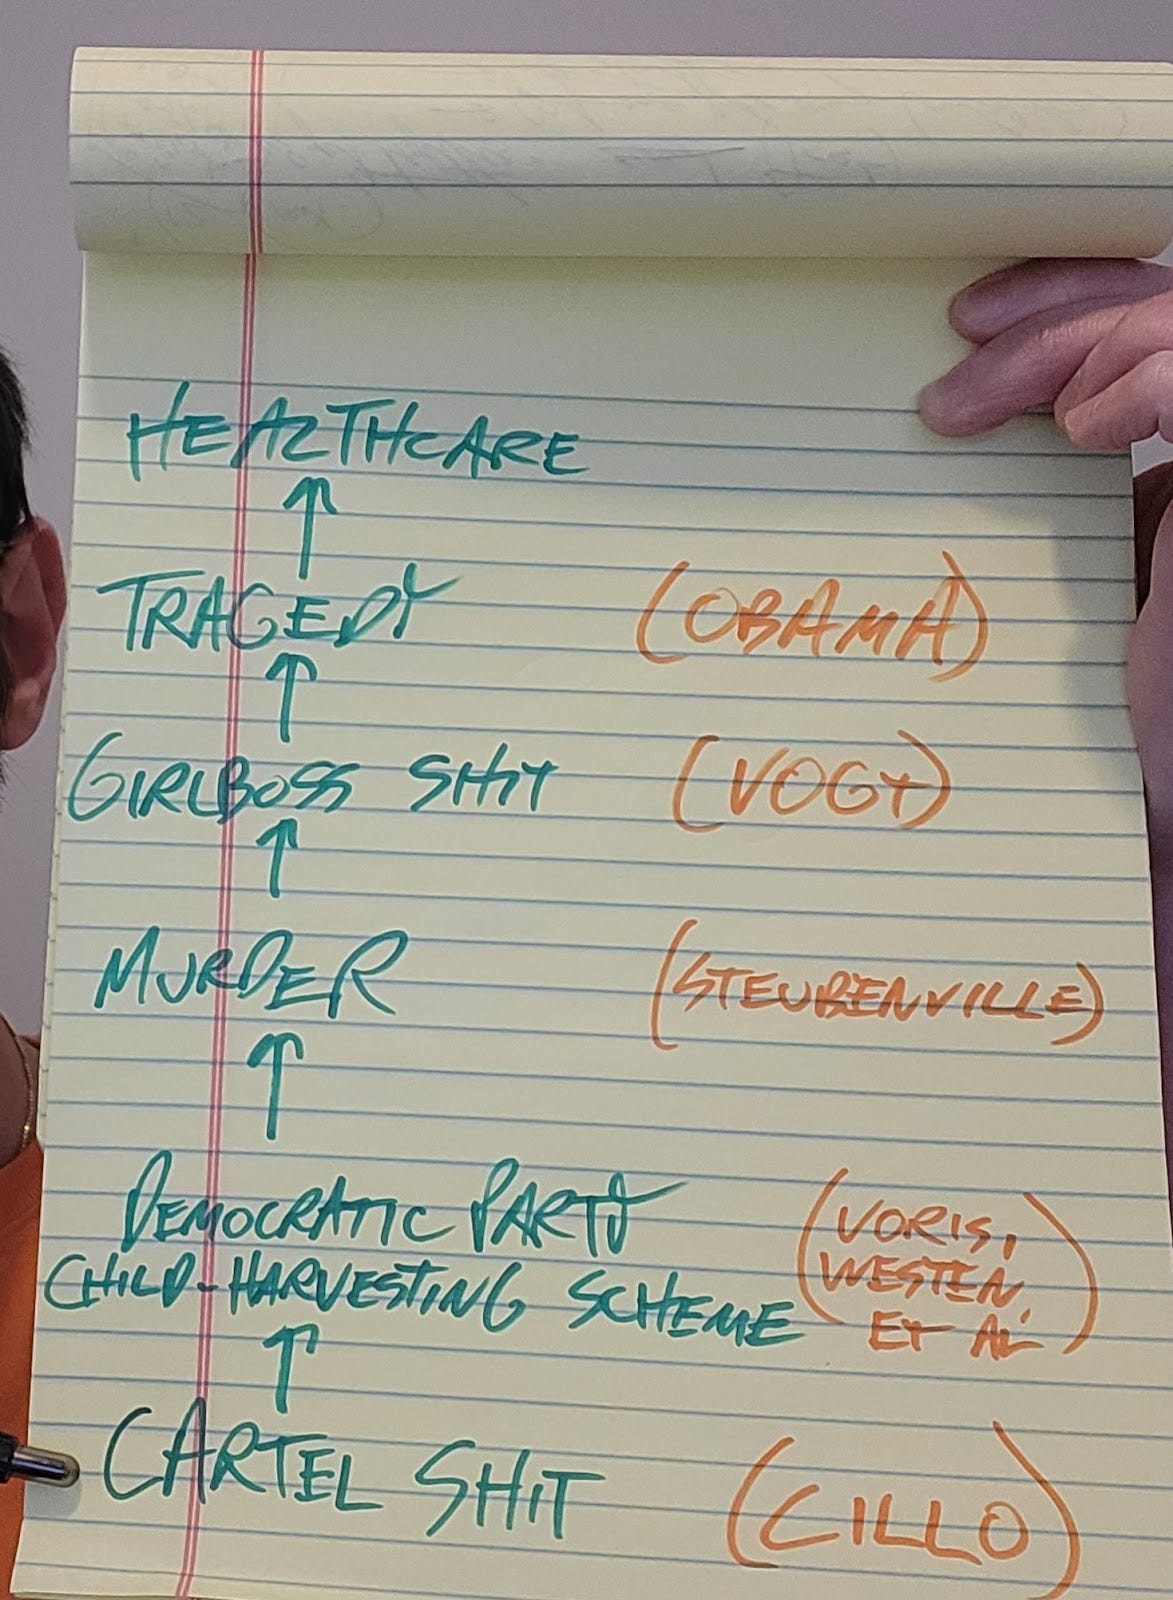 HEALTHCARE
↑
TRAGEDY (OBAMA)
↑
GIRLBOSS SHIT (VOGT)
↑
MURDER (STEUBENVILLE)
↑
DEMOCRATIC PARTY (VORIS,
CHILD-HARVESTING SCHEME WESTEN,
ET AL)
↑
CARTEL SHIT (CILLO)